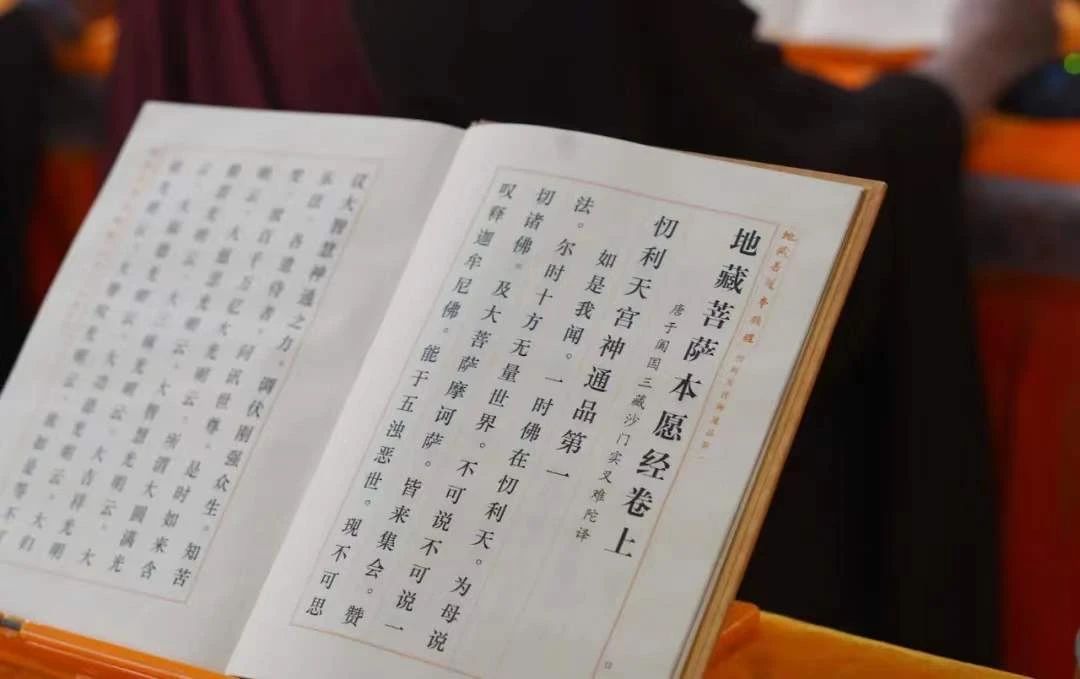 地藏菩萨本愿经
地藏菩萨本愿经卷上
唐于阗国三藏沙门实叉难陀译
忉利天宫神通品第一
如是我闻。一时佛在忉利天。为母说
法。尔时十方无量世界。不可说不可说一
切诸佛。及大菩萨摩诃萨。皆来集会。赞
叹释迦牟尼佛。能于五浊恶世。现不可思
议大智慧神通之力。调伏刚强众生。知苦
乐法。各遣侍者。问讯世尊。是时如来含
笑。放百千万亿大光明云。所谓大圆满光
明云。大慈悲光明云。大智慧光明云。大
般若光明云。大三昧光明云。大吉祥光明
云。大福德光明云。大功德光明云。大归